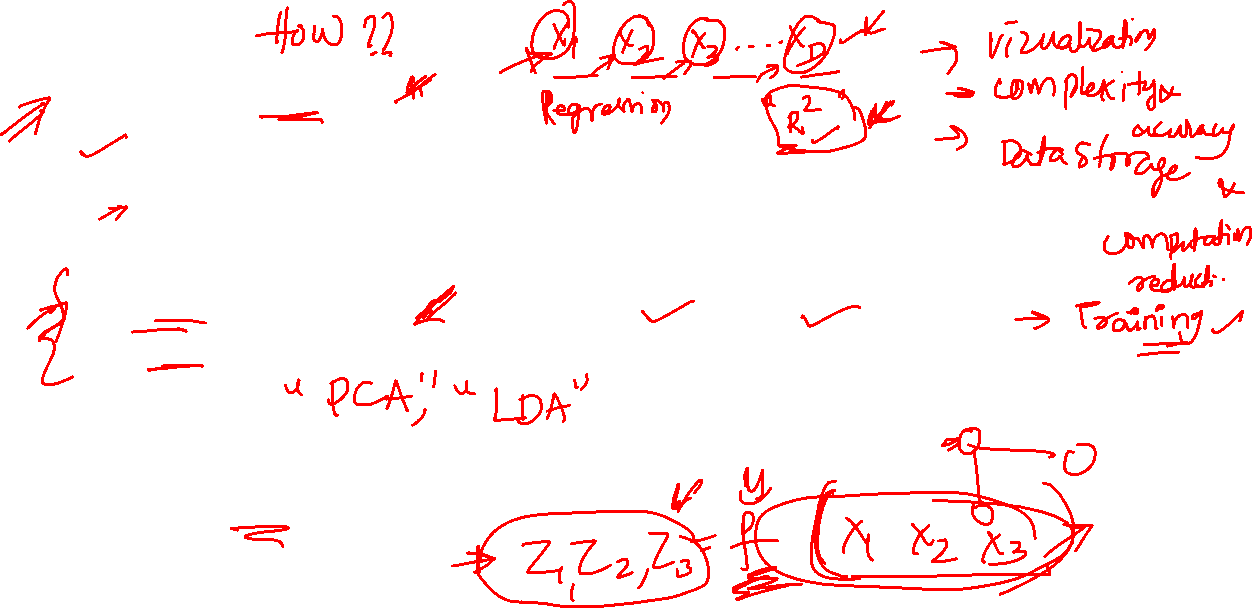 HOW ??
X1 X2 X3 .... XD
Regression
"R²"
→ Vizualization
→ complexity &
accuracy
→ Data Storage
&
computation
reducti.
→ Training
"PCA," "LDA"
y
→ Z1, Z2, Z3 = P (X1 X2 X3)